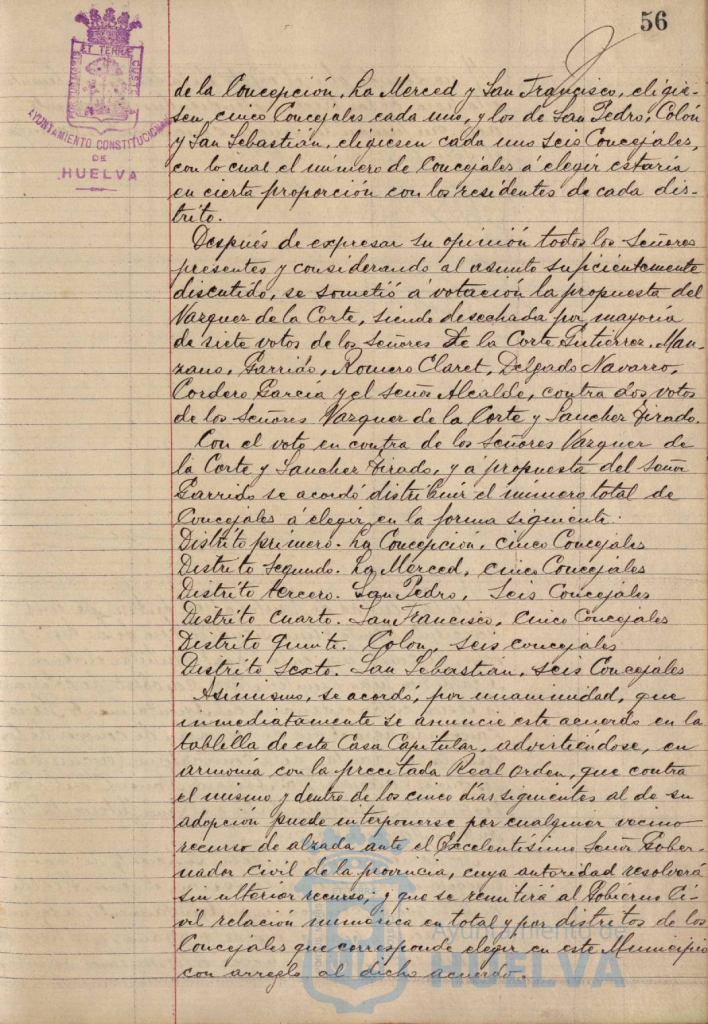 56
ET TERRÆ
CUSTO
AYUNTAMIENTO CONSTITUCIONAL
DE
HUELVA
de la Concepción, La Merced y San Francisco, eligie-
sen cinco Concejales cada uno, y los de San Pedro, Colón
y San Sebastián, eligiesen cada uno seis Concejales,
con lo cual el número de Concejales á elegir estaria
en cierta proporción con los residentes de cada dis-
trito.
Después de expresar su opinión todos los Señores
presentes y considerando al asunto suficientemente
discutido, se sometió á votación la propuesta del
Vazquez de la Corte, siendo desechada por mayoria
de siete votos de los Señores De la Corte Gutierrez, Man-
zano, Garrido, Romero Claret, Delgado Navarro,
Cordero Garcia y el Señor Alcalde, contra dos votos
de los Señores Vazquez de la Corte y Sanchez Tirado.
Con el voto en contra de los Señores Vazquez de
la Corte y Sanchez Tirado, y á propuesta del Señor
Garrido se acordó distribuir el número total de
Concejales á elegir en la forma siguiente:
Distrito primero. La Concepción, cinco Concejales
Distrito Segundo. La Merced, cinco Concejales
Distrito tercero. San Pedro, Seis Concejales
Distrito Cuarto. San Francisco, Cinco Concejales
Distrito Quinto. Colon, seis concejales
Distrito Sexto. San Sebastian, seis Concejales
Asimismo, se acordó, por unanimidad, que
inmediatamente se anuncie este acuerdo en la
tablilla de esta Casa Capitular, advirtiéndose, en
armonia con la precitada Real Orden, que contra
el mismo y dentro de los cinco días siguientes al de su
adopción puede interponerse por cualquier vecino
recurso de alzada ante el Excelentísimo Señor Gober-
nador civil de la provincia, cuya autoridad resolverá
sin ulterior recurso; y que se remitirá al Gobierno Ci-
vil relación numérica en total y por distritos de los
Concejales que corresponde elegir en este Municipio
con arreglo al dicho acuerdo.
Ayuntamiento de
HUELVA